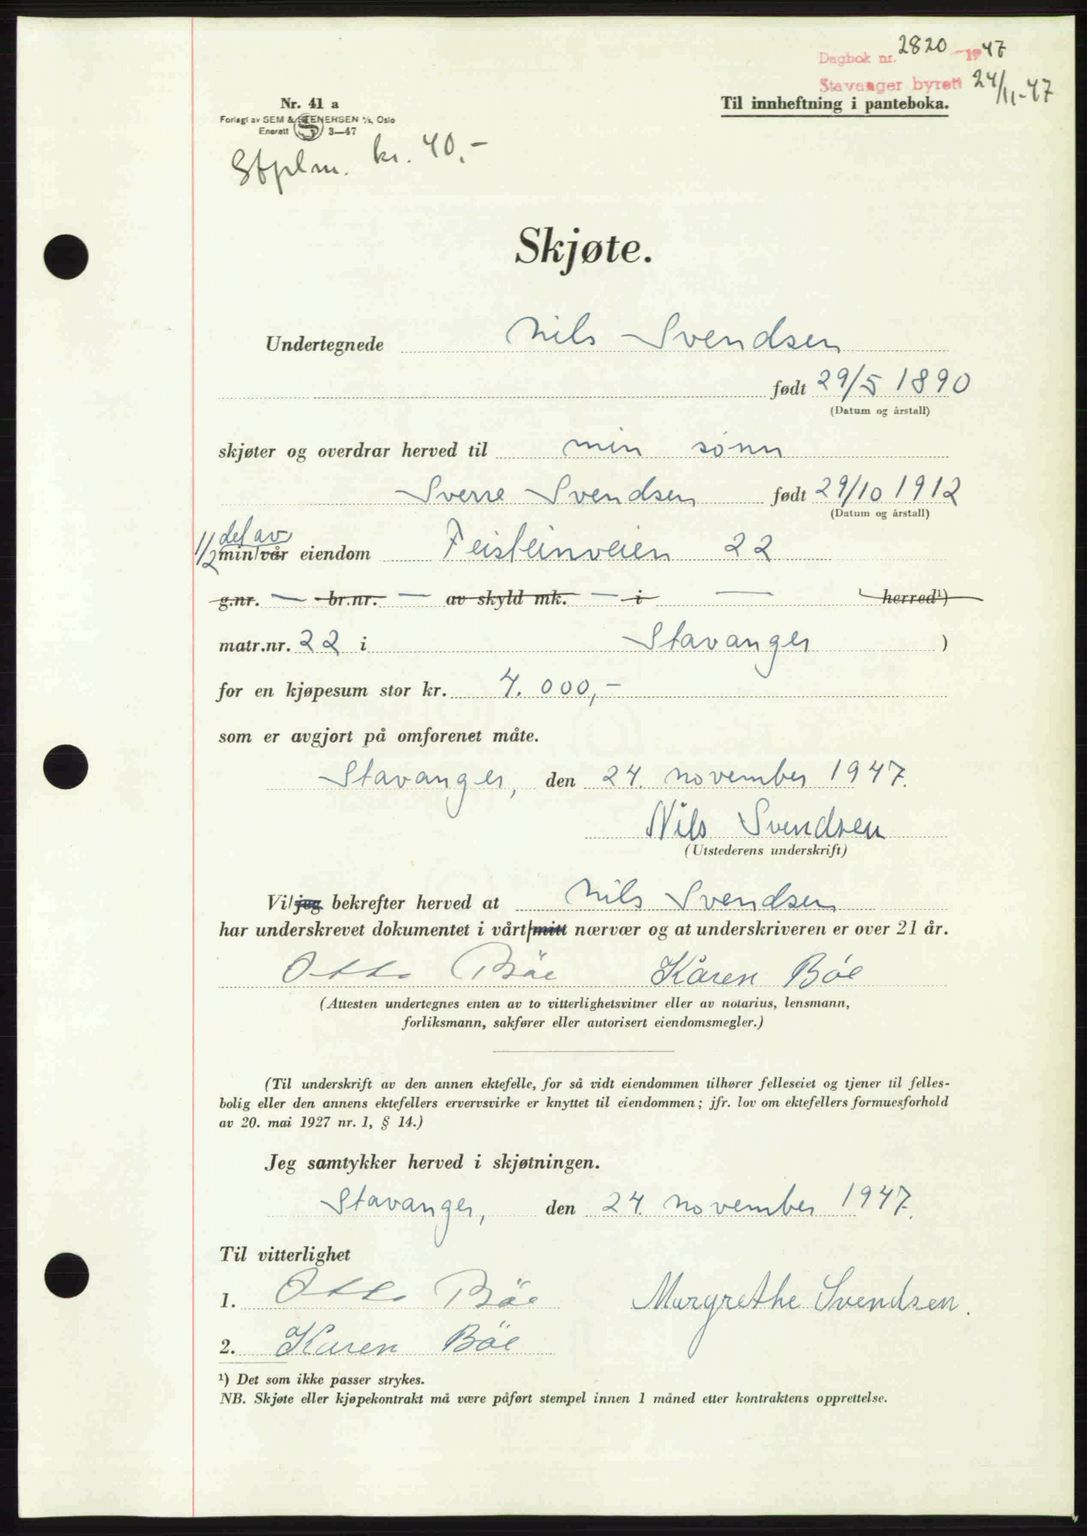 Dagbok nr. 2820 - 1947
Stavanger byrett 24/11-47
Nr. 41 a
Til innheftning i panteboka.
Forlagt av SEM & STENERSEN A/S, Oslo
Enerett 3—47
Stplm. kr. 40,-
Skjøte.
Undertegnede Nils Svendsen
født 29/5 1890
(Datum og årstall)
skjøter og overdrar herved til min sønn
Sverre Svendsen født 29/10 1912
(Datum og årstall)
1/2 del av
min/vår eiendom Feisteinveien 22
g.nr. — br.nr. — av skyld mk. — i — herred¹)
matr.nr. 22 i Stavanger )
for en kjøpesum stor kr. 4.000,-
som er avgjort på omforenet måte.
Stavanger, den 24. november 1947.
Nils Svendsen
(Utstederens underskrift)
Vi/jeg bekrefter herved at Nils Svendsen
har underskrevet dokumentet i vårt/mitt nærvær og at underskriveren er over 21 år.
Otto Bøe Kåren Bøe
(Attesten undertegnes enten av to vitterlighetsvitner eller av notarius, lensmann,
forliksmann, sakfører eller autorisert eiendomsmegler.)
(Til underskrift av den annen ektefelle, for så vidt eiendommen tilhører felleseiet og tjener til felles-
bolig eller den annens ektefellers ervervsvirke er knyttet til eiendommen; jfr. lov om ektefellers formuesforhold
av 20. mai 1927 nr. 1, § 14.)
Jeg samtykker herved i skjøtningen.
Stavanger, den 24. november 1947.
Til vitterlighet
1. Otto Bøe Margrethe Svendsen.
2. Karen Bøe
¹) Det som ikke passer strykes.
NB. Skjøte eller kjøpekontrakt må være påført stempel innen 1 måned etter kontraktens opprettelse.